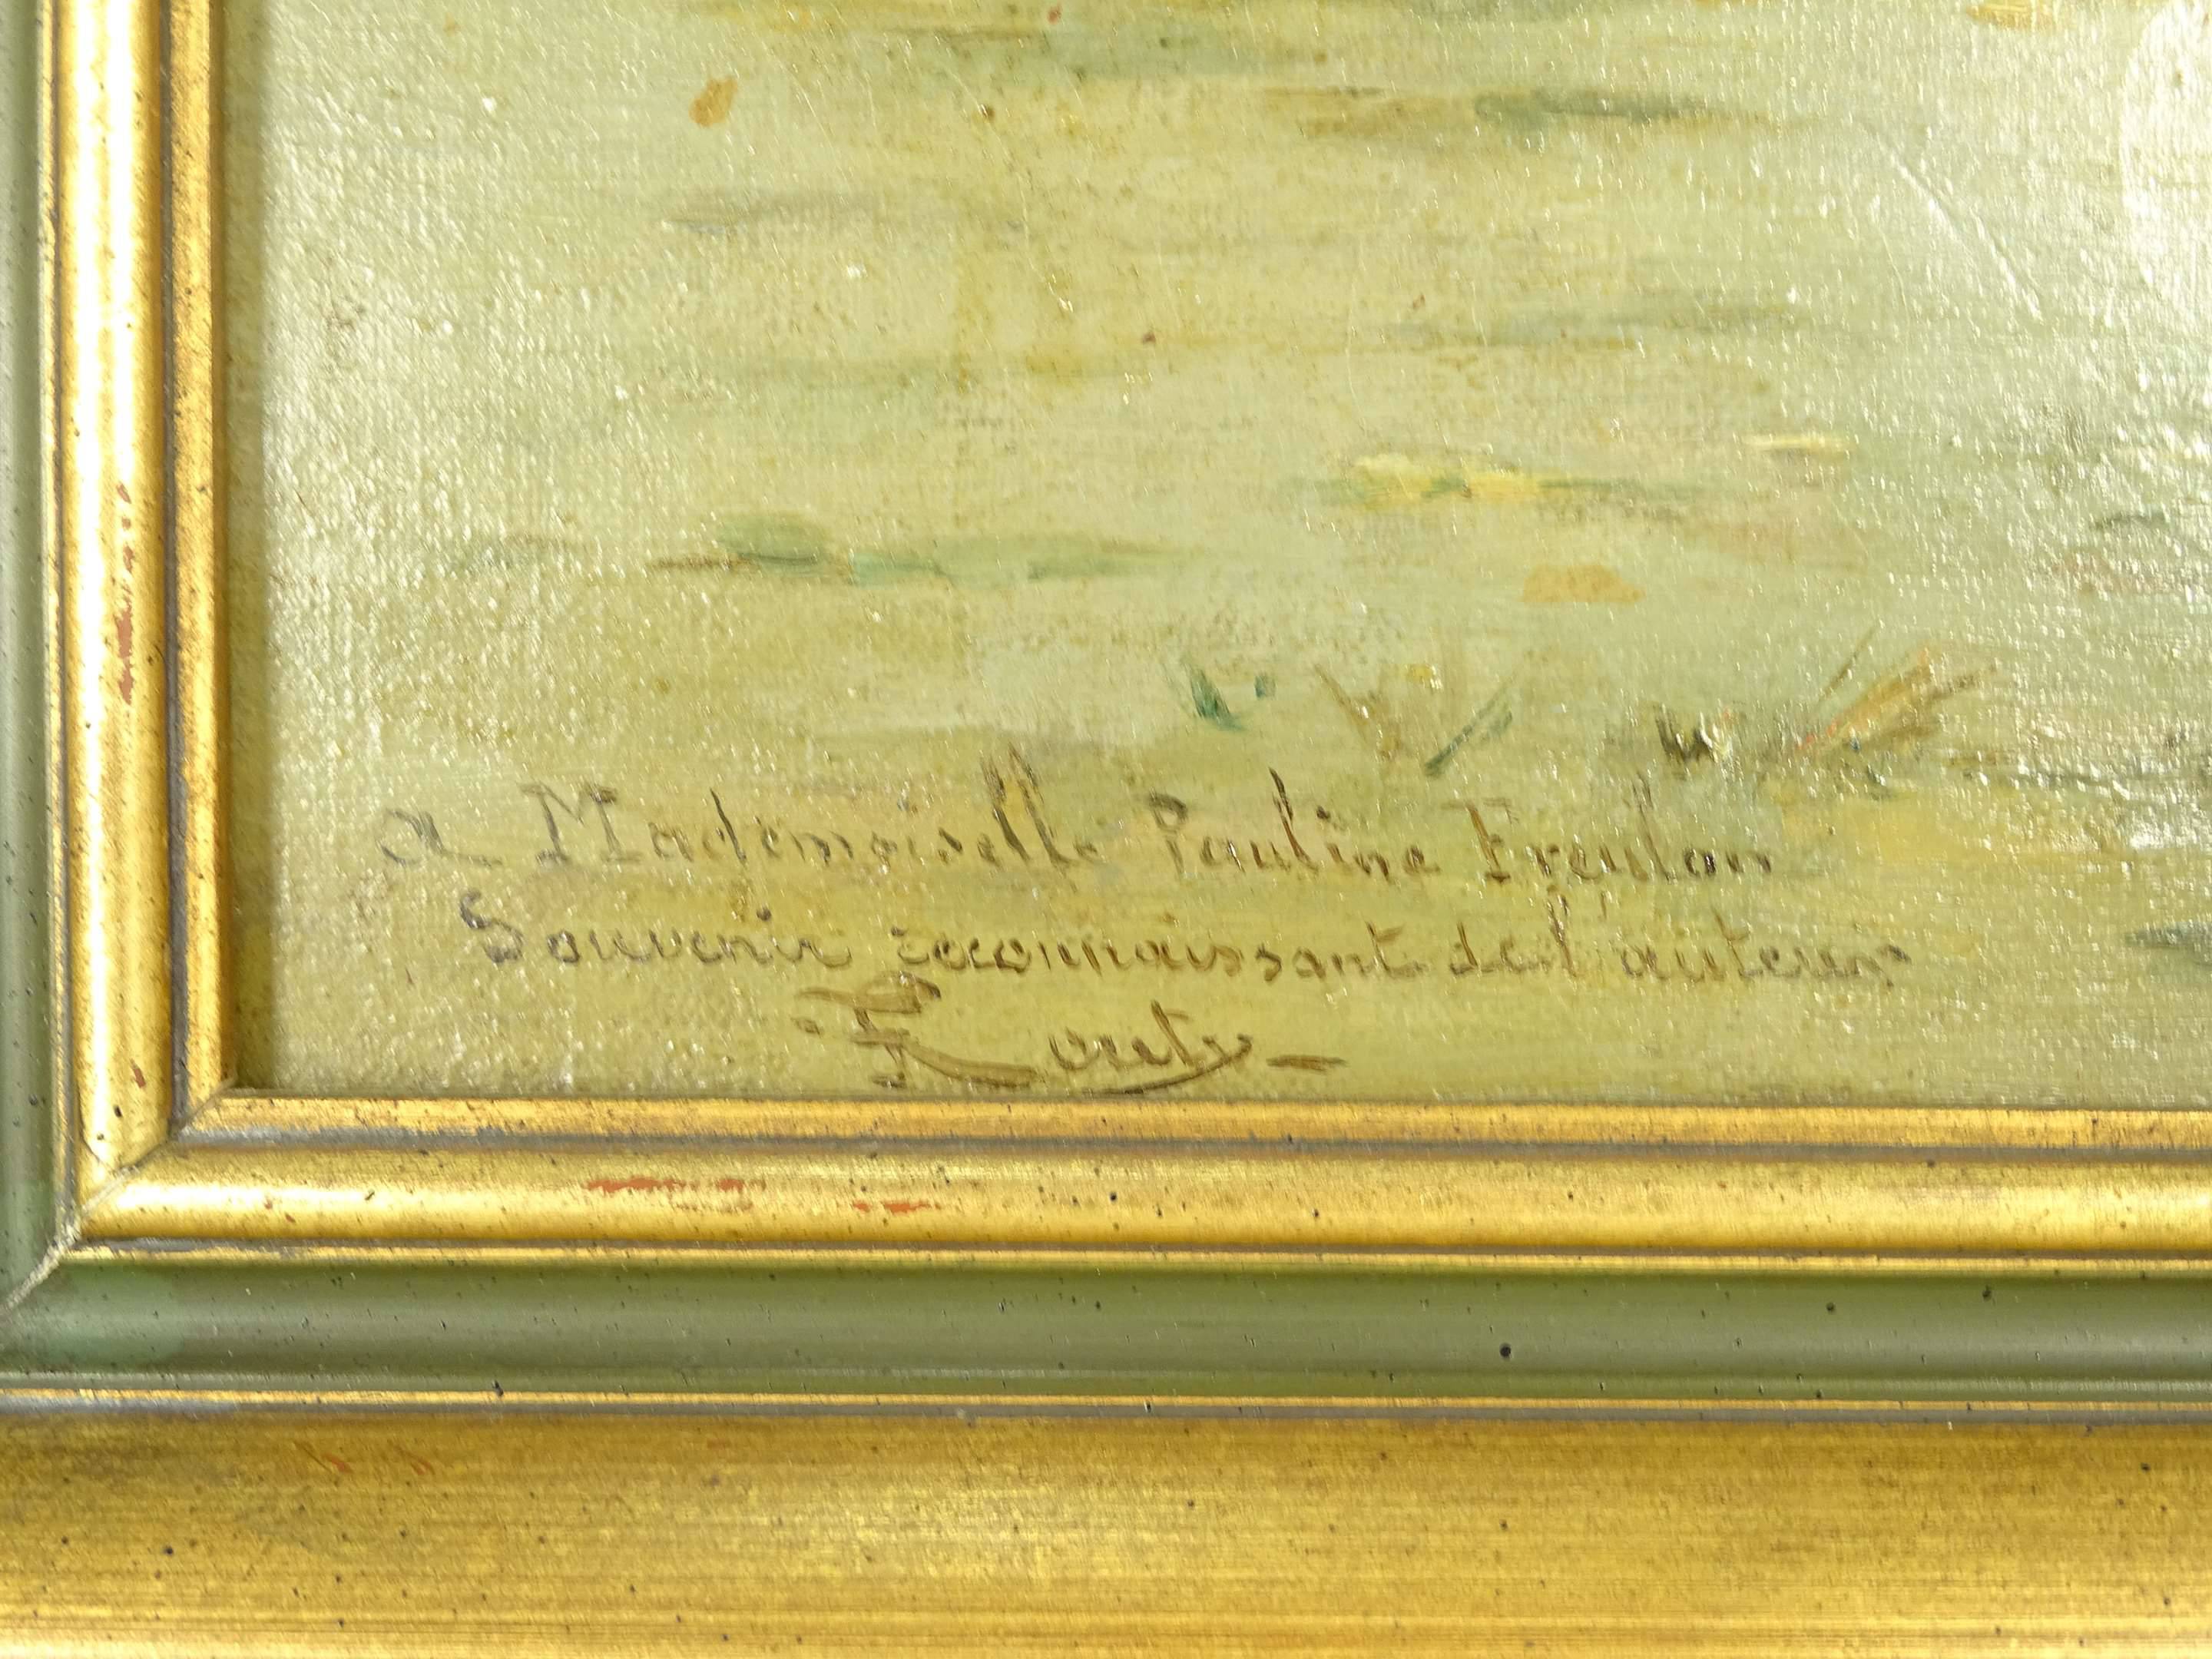 a Mademoiselle Pauline Freulon
Souvenir reconnaissant de l'auteur
Routy